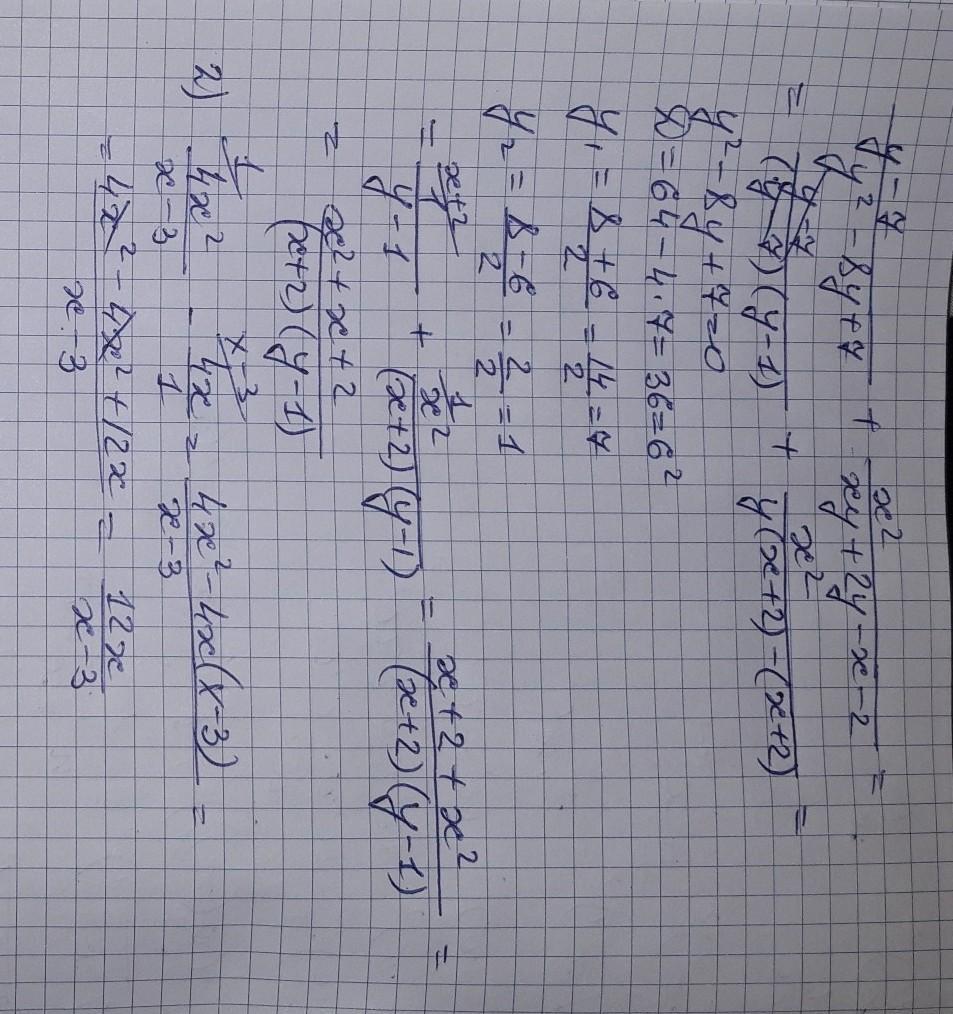 (y-7)/(y² - 8y + 7) + x²/(xy + 2y - x - 2) =
= (y-7)/((y-7)(y-1)) + x²/(y(x+2) - (x+2)) =
y² - 8y + 7 = 0
D = 64 - 4·7 = 36 = 6²
y₁ = (8+6)/2 = 14/2 = 7
y₂ = (8-6)/2 = 2/2 = 1
= x+2/ 1/(y-1) + 1/ x²/((x+2)(y-1)) = (x+2+x²)/((x+2)(y-1)) =
= (x²+x+2)/((x+2)(y-1))
2) 1/ 4x²/(x-3) - x-3/ 4x/1 = (4x² - 4x(x-3))/(x-3) =
= (4x² - 4x² + 12x)/(x-3) = 12x/(x-3)